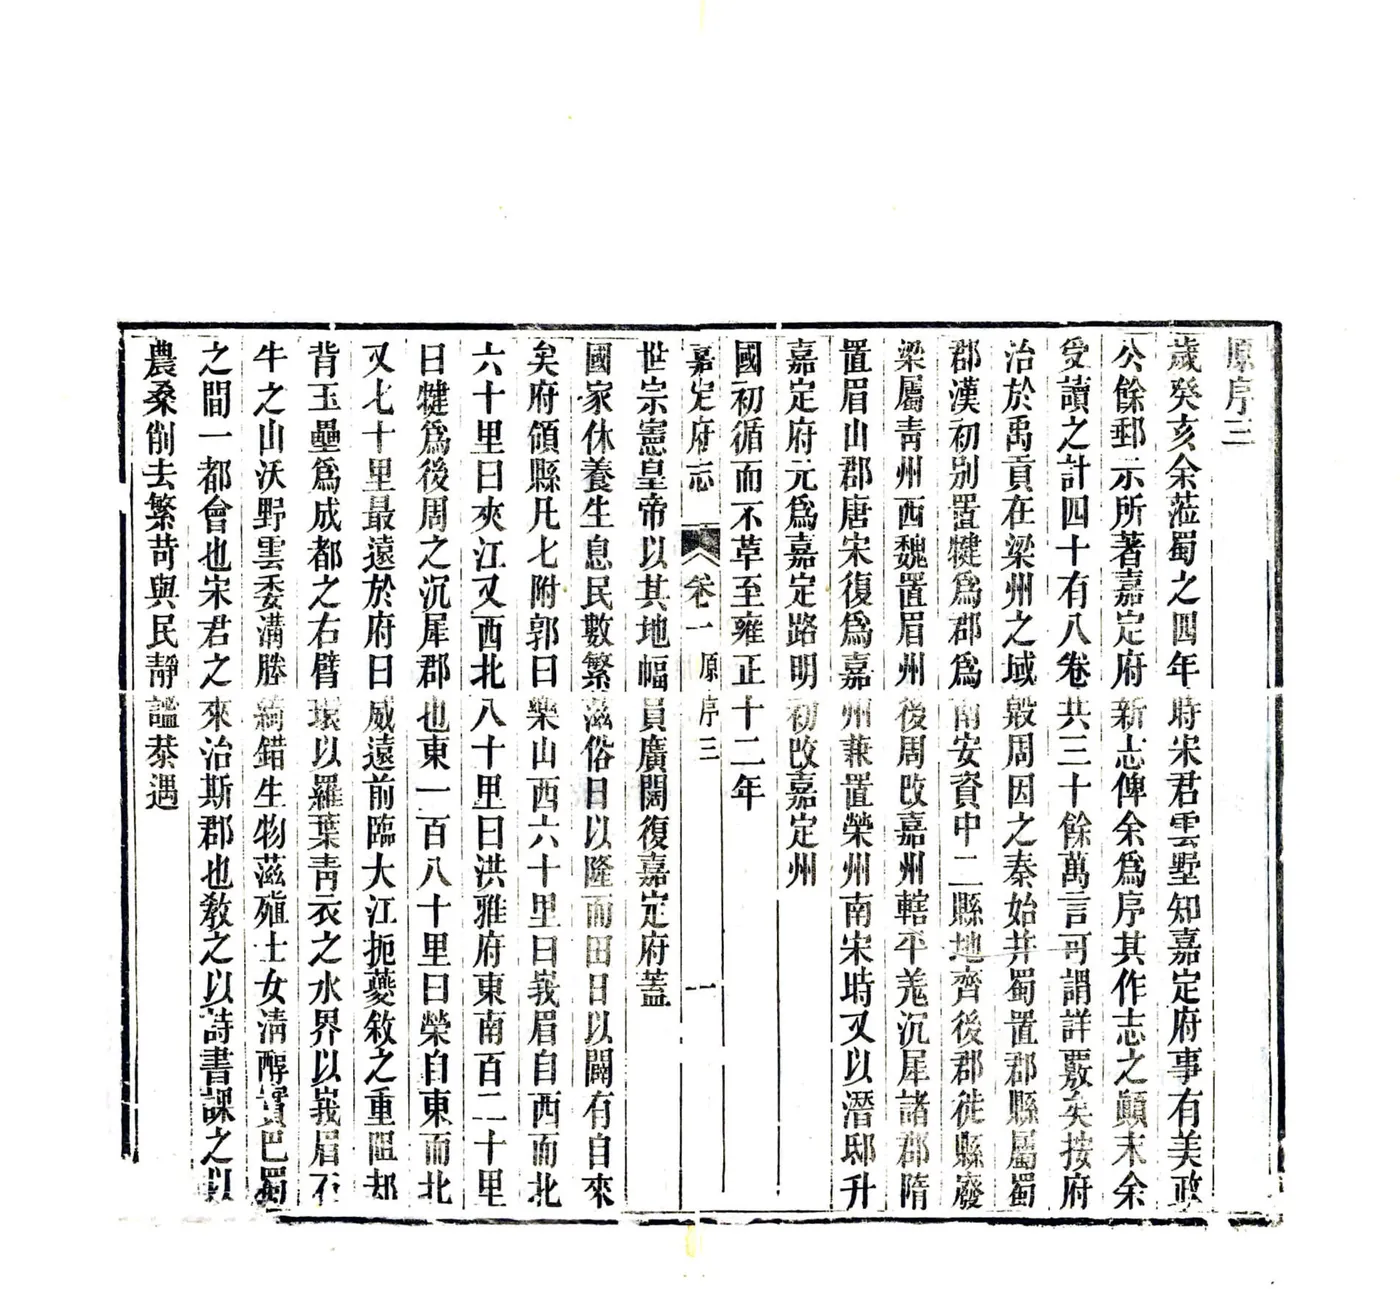 原序三
歲癸亥余蒞蜀之四年時宋君雲墅知嘉定府事有美政
公餘郵示所著嘉定府新志俾余爲序其作志之顛末余
受讀之計四十有八卷共三十餘萬言可謂詳覈矣按府
治於禹貢在梁州之域殷周因之秦始并蜀置郡縣屬蜀
郡漢初別置犍爲郡爲南安資中二縣地齊後郡徙縣廢
梁屬青州西魏置眉州後周改嘉州轄平羌沉犀諸郡隋
置眉山郡唐宋復爲嘉州兼置榮州南宋時又以潛邸升
嘉定府元爲嘉定路明初改嘉定州
國初循而不革至雍正十二年
嘉定府志 卷一 原序三 一
世宗憲皇帝以其地幅員廣闊復嘉定府蓋
國家休養生息民數繁滋俗日以隆而田日以闢有自來
矣府領縣凡七附郭曰樂山西六十里曰峩眉自西而北
六十里曰夾江又西北八十里曰洪雅府東南百二十里
曰犍爲後周之沉犀郡也東一百八十里曰榮自東而北
又七十里最遠於府曰威遠前臨大江扼夔敘之重阻却
背玉壘爲成都之右臂環以羅葉青衣之水界以峩眉石
牛之山沃野雲委溝塍綺錯生物滋殖士女清醇實巴蜀
之間一都會也宋君之來治斯郡也敎之以詩書課之以
農桑削去繁苛與民靜謐叅遇